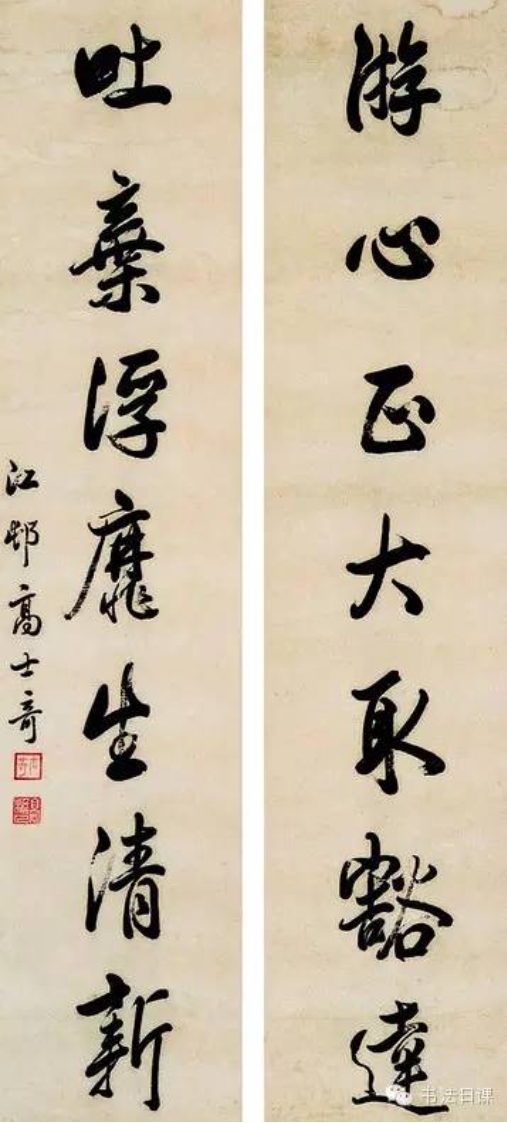 游心正大取豁達
吐棄浮靡生清新
江邨高士奇
书法日课